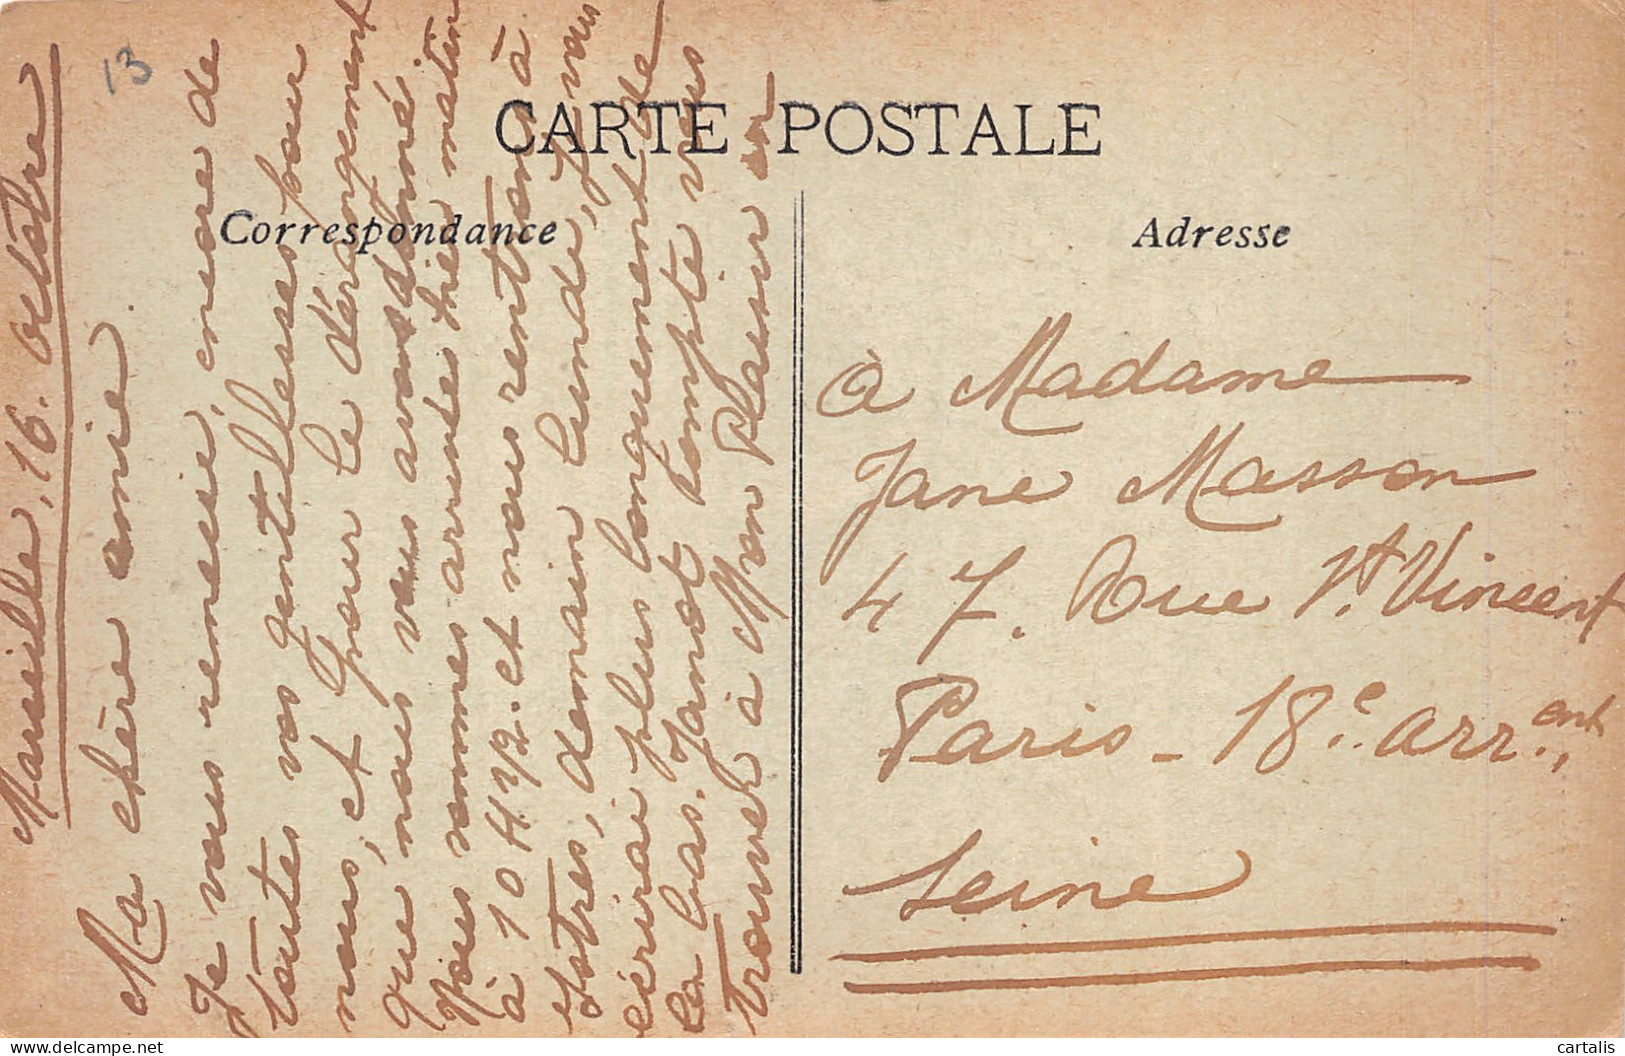 13
CARTE POSTALE
Correspondance
Adresse
Marseille, 16. octobre
Ma chère amie
Je vous remercie, encore de
toutes vos gentillesses pour
nous, et pour le dérangement
que nous vous avons donné.
Nous sommes arrivés hier matin
à 10 H 1/2. et nous rentrons à
Istres, demain lundi, Je vous
écrirai plus longuement de
la bas. Janot compte vous
trouver à Mon Plaisir en
à Madame
Jane Masson
47. Rue St. Vincent
Paris - 18e. arr.ent,
Seine
cartalis
delcampe.net